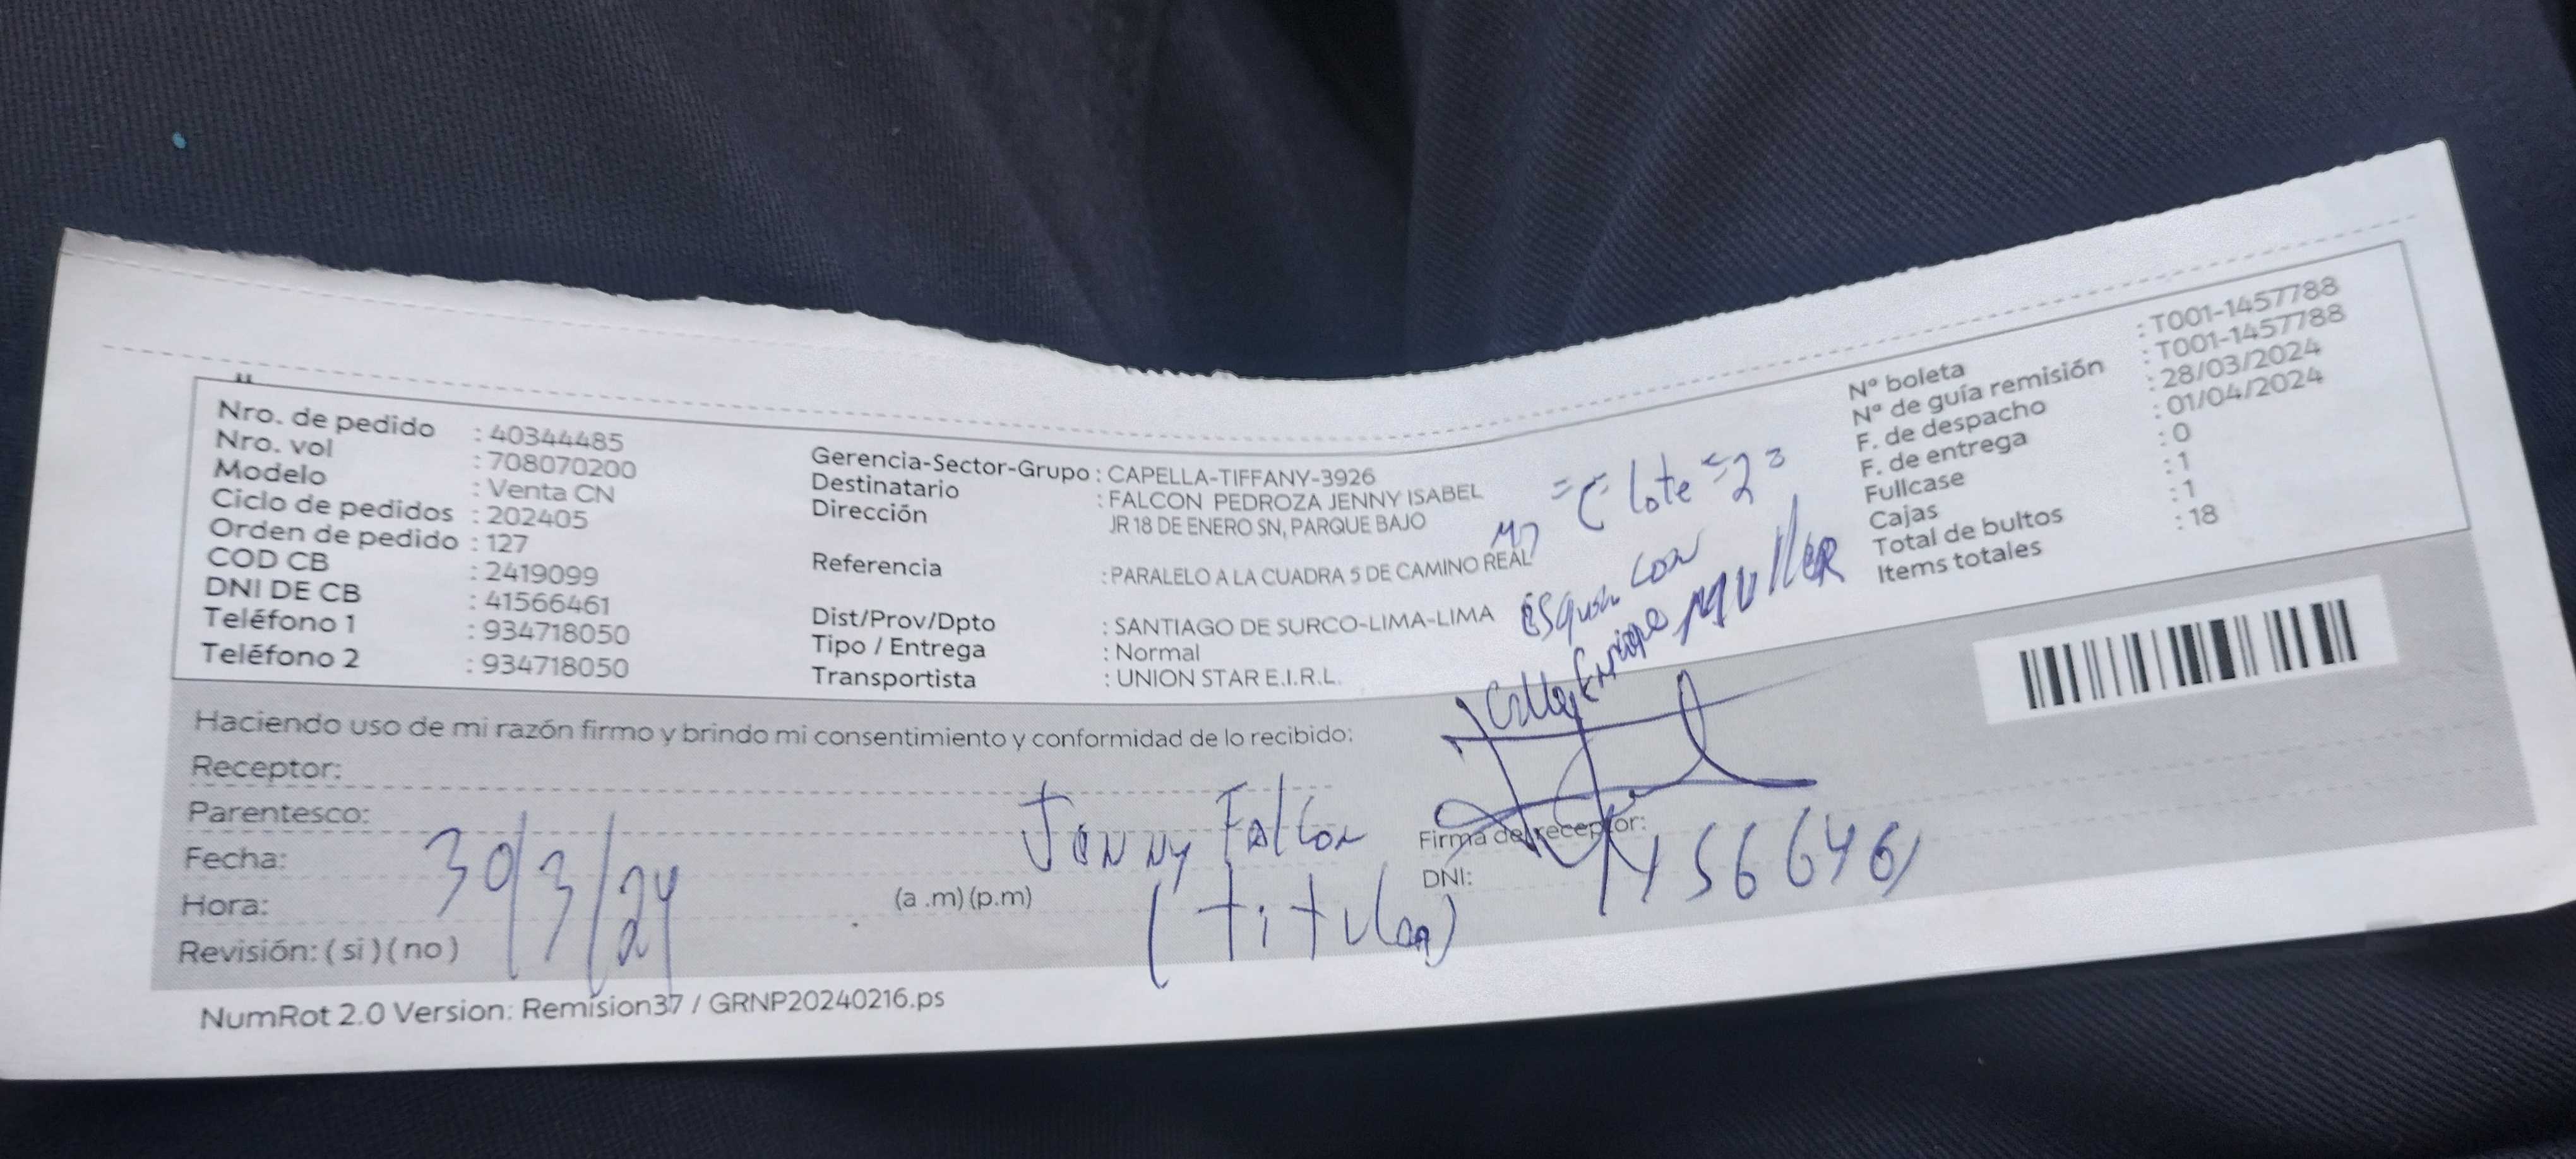 Nro. de pedido : 40344485
Nro. vol : 708070200
Modelo : Venta CN
Ciclo de pedidos : 202405
Orden de pedido : 127
COD CB : 2419099
DNI DE CB : 41566461
Teléfono 1 : 934718050
Teléfono 2 : 934718050
Gerencia-Sector-Grupo : CAPELLA-TIFFANY-3926
Destinatario : FALCON PEDROZA JENNY ISABEL
Dirección JR 18 DE ENERO SN, PARQUE BAJO
Referencia : PARALELO A LA CUADRA 5 DE CAMINO REAL
Dist/Prov/Dpto : SANTIAGO DE SURCO-LIMA-LIMA
Tipo / Entrega : Normal
Transportista : UNION STAR E.I.R.L.
Mz =C= lote =2=
esquina con
Calle Enrique Muller
N° boleta : T001-1457788
N° de guía remisión : T001-1457788
F. de despacho : 28/03/2024
F. de entrega : 01/04/2024
Fullcase : 0
Cajas : 1
Total de bultos : 1
Items totales : 18
Haciendo uso de mi razón firmo y brindo mi consentimiento y conformidad de lo recibido:
Receptor:
Parentesco:
Fecha: 30/3/24
Hora: (a .m) (p.m)
Revisión: ( si ) ( no )
Jenny Falcon
(titular)
Firma del receptor:
DNI: 41566461
NumRot 2.0 Version: Remision37 / GRNP20240216.ps